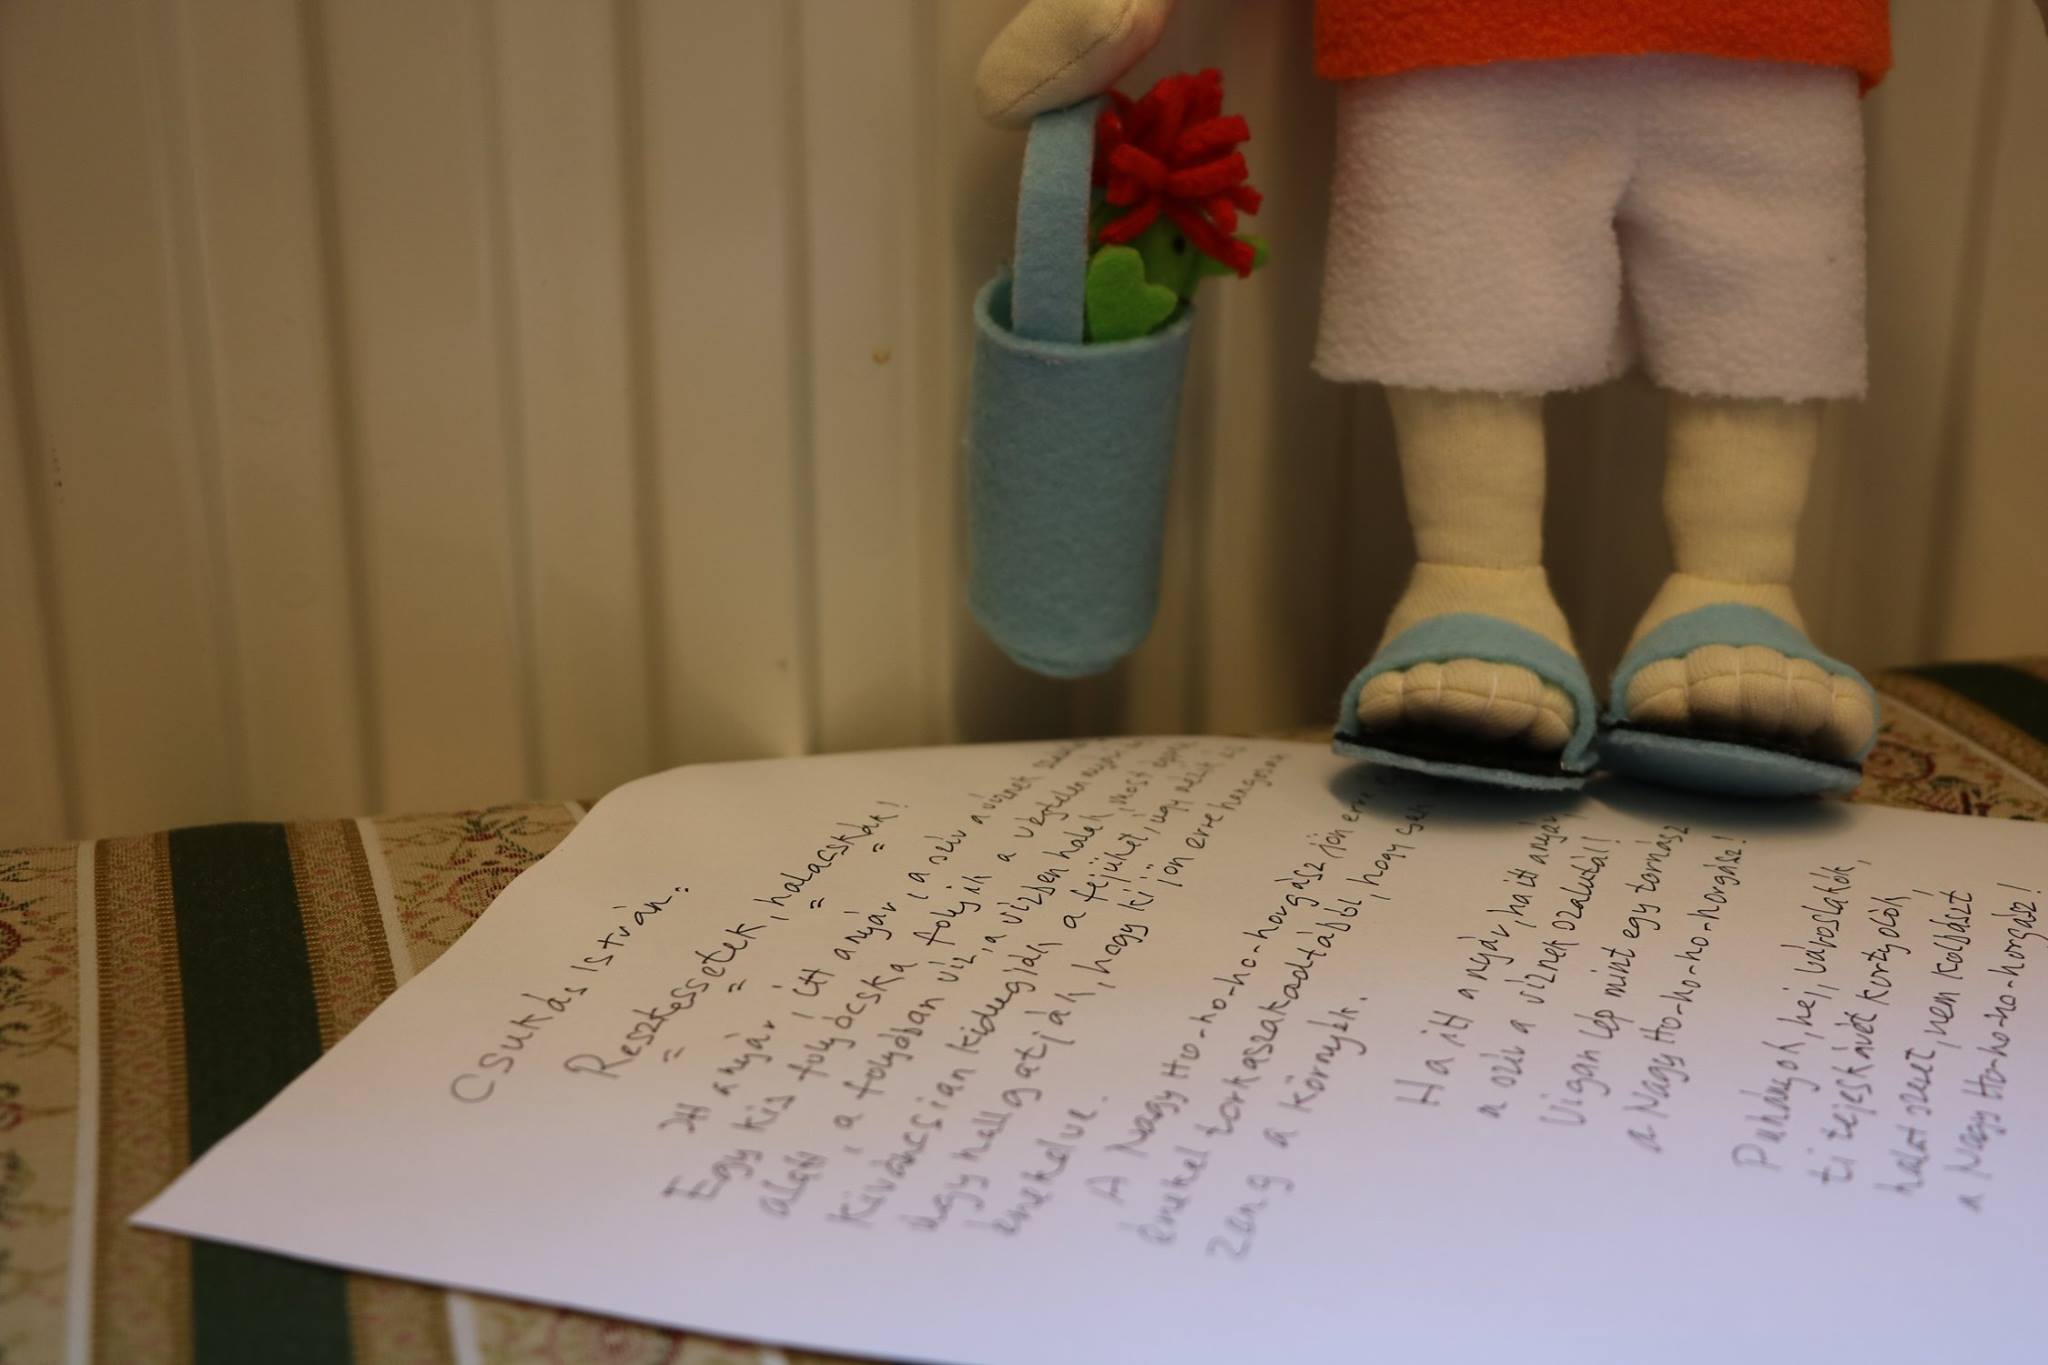 Csukás István:
Reszkessetek, halacskák!
Itt a nyár, itt a nyár, a szív a víznek
Egy kis folyócska folyik a végtelen
alatt, a folyóban víz, a vízben halak, most éppen
kíváncsian kidugják a fejüket, úgy nézik és
úgy hallgatják, hogy ki jön erre hangosan
énekelve.
A Nagy Ho-ho-ho-horgász jön erre
énekel torkaszakadtából, hogy csak
zeng a környék.
Ha itt a nyár, ha itt a nyár,
a szív a víznek szalutál!
Vígan lép mint egy tornász
a Nagy Ho-ho-ho-horgász!
Puhányok, hej, városlakók,
ti tejeskávét kortyolók,
halat szeret, nem kolbászt
a Nagy Ho-ho-ho-horgász!